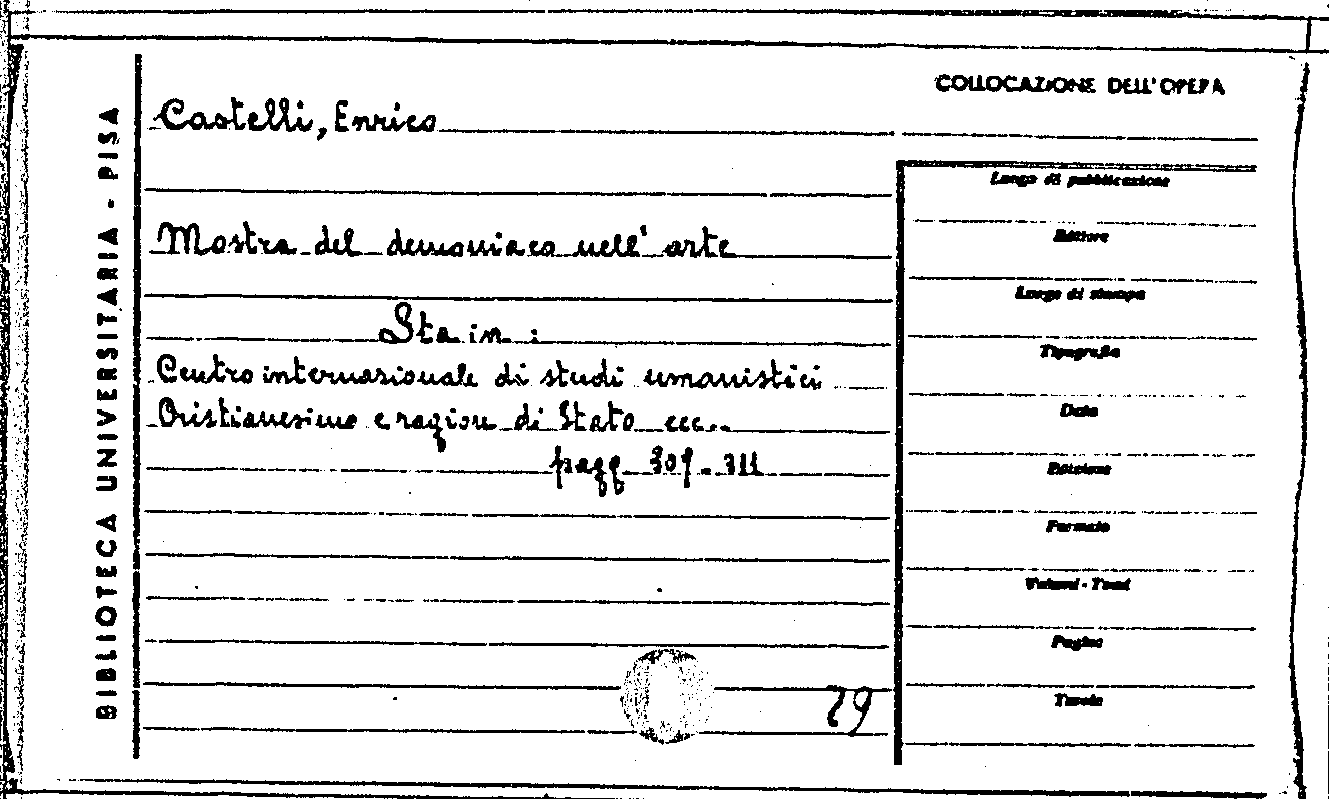 BIBLIOTECA UNIVERSITARIA - PISA
COLLOCAZIONE DELL'OPERA
Castelli, Enrico
Mostra del demoniaco nell' arte
Sta in :
Centro internazionale di studi umanistici
Cristianesimo e ragion di Stato ecc..
pagg 309-311
29
Luogo di pubblicazione
Editore
Luogo di stampa
Tipografia
Data
Edizione
Formato
Volumi - Tomi
Pagine
Tavole